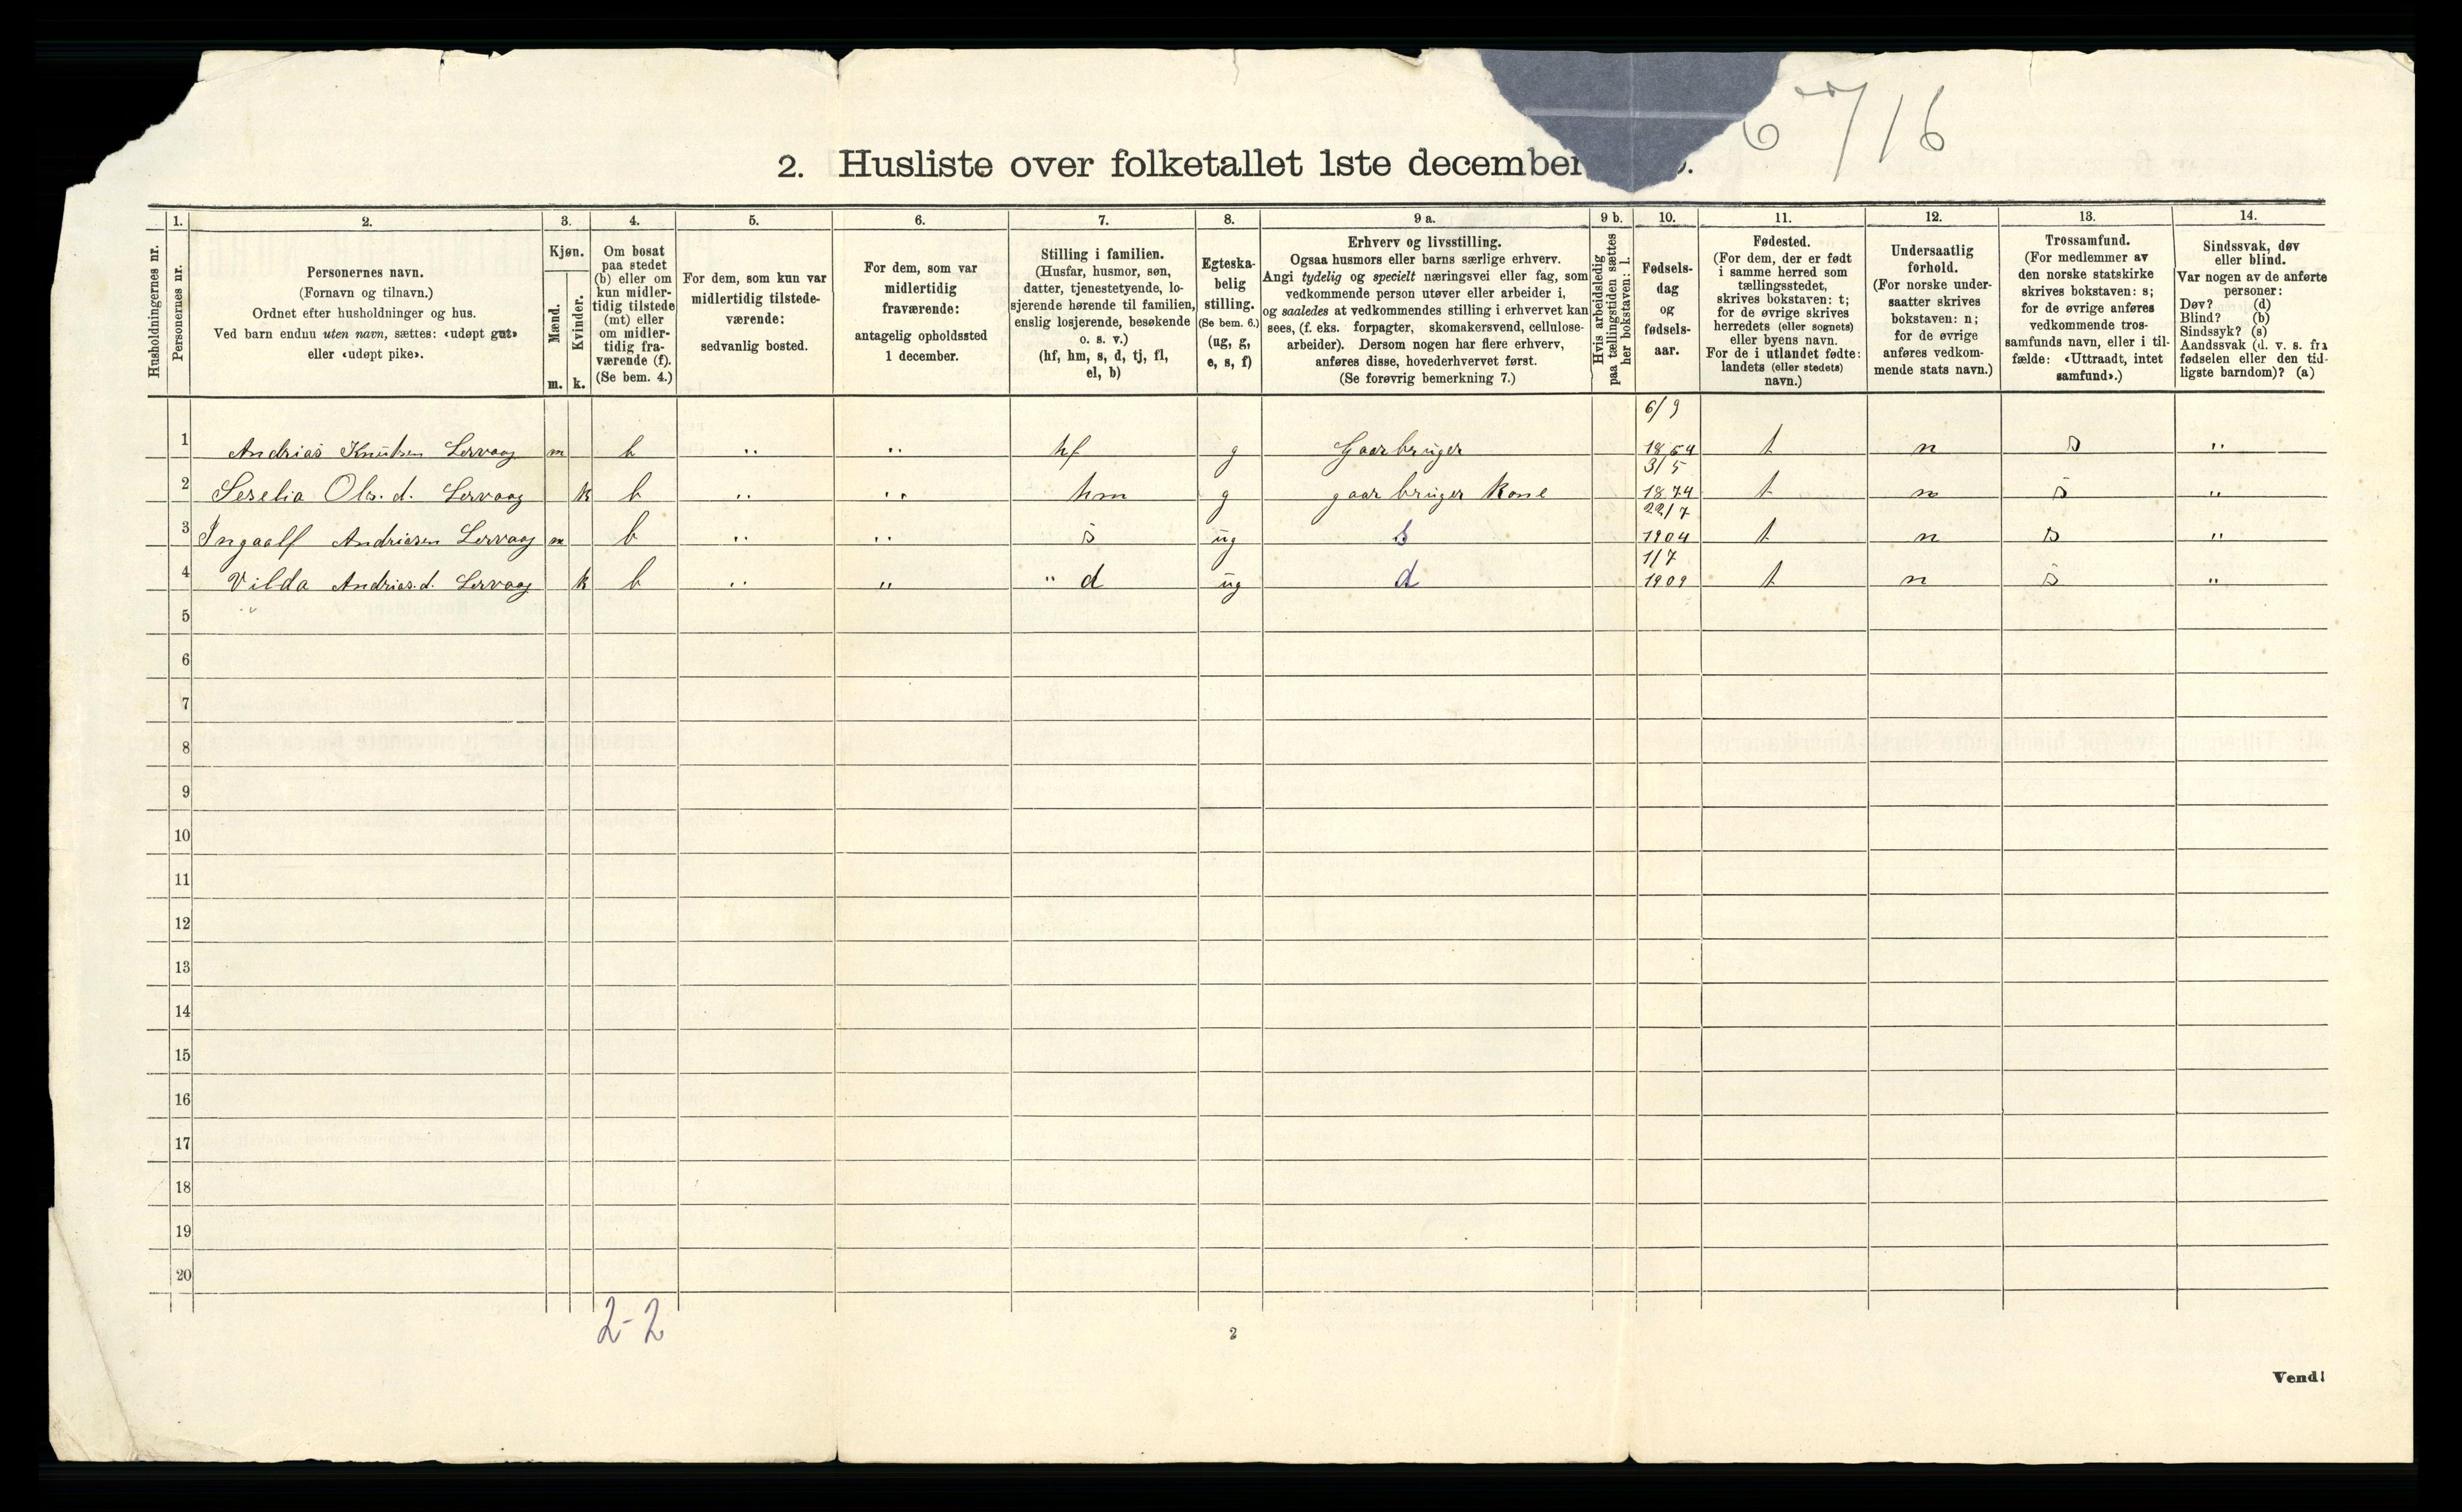 6716
2. Husliste over folketallet 1ste december
Husholdningernes nr.
1. Personernes nr.
2. Personernes navn.
(Fornavn og tilnavn.)
Ordnet efter husholdninger og hus.
Ved barn endnu uten navn, sættes: «udøpt gut»
eller «udøpt pike».
3. Kjøn.
Mænd. m.
Kvinder. k.
4. Om bosat
paa stedet
(b) eller om
kun midler-
tidig tilstede
(mt) eller
om midler-
tidig fra-
værende (f).
(Se bem. 4.)
5. For dem, som kun var
midlertidig tilstede-
værende:
sedvanlig bosted.
6. For dem, som var
midlertidig
fraværende:
antagelig opholdssted
1 december.
7. Stilling i familien.
(Husfar, husmor, søn,
datter, tjenestetyende, lo-
sjerende hørende til familien,
enslig losjerende, besøkende
o. s. v.)
(hf, hm, s, d, tj, fl,
el, b)
8. Egteska-
belig
stilling.
(Se bem. 6.)
(ug, g,
e, s, f)
9 a. Erhverv og livsstilling.
Ogsaa husmors eller barns særlige erhverv.
Angi tydelig og specielt næringsvei eller fag, som
vedkommende person utøver eller arbeider i,
og saaledes at vedkommendes stilling i erhvervet kan
sees, (f. eks. forpagter, skomakersvend, cellulose-
arbeider). Dersom nogen har flere erhverv,
anføres disse, hovederhvervet først.
(Se forøvrig bemerkning 7.)
9 b. Hvis arbeidsledig
paa tællingstiden sættes
her bokstaven: l.
10. Fødsels-
dag
og
fødsels-
aar.
11. Fødested.
(For dem, der er født
i samme herred som
tællingsstedet,
skrives bokstaven: t;
for de øvrige skrives
herredets (eller sognets)
eller byens navn.
For de i utlandet fødte:
landets (eller stedets)
navn.)
12. Undersaatlig
forhold.
(For norske under-
saatter skrives
bokstaven: n;
for de øvrige
anføres vedkom-
mende stats navn.)
13. Trossamfund.
(For medlemmer av
den norske statskirke
skrives bokstaven: s;
for de øvrige anføres
vedkommende tros-
samfunds navn, eller i til-
fælde: «Uttraadt, intet
samfund».)
14. Sindssvak, døv
eller blind.
Var nogen av de anførte
personer:
Døv? (d)
Blind? (b)
Sindssyk? (s)
Aandssvak (d. v. s. fra
fødselen eller den tid-
ligste barndom)? (a)
1 Andrias Knutsen Lervaag m b " " hf g Gaarbruger 6/9 1864 t n s "
2 Serelia Ols.d. Lervaag k b " " hm g gaarbruger Kone 3/5 1874 t n s "
3 Ingaalf Andriasen Lervaag m b " " s ug s 22/7 1904 t n s "
4 Vilda Andrias.d. Lervaag k b " " " d ug d 1/7 1909 t n s "
5 "
6
7
8
9
10
11
12
13
14
15
16
17
18
19
20
2-2
2
Vend!